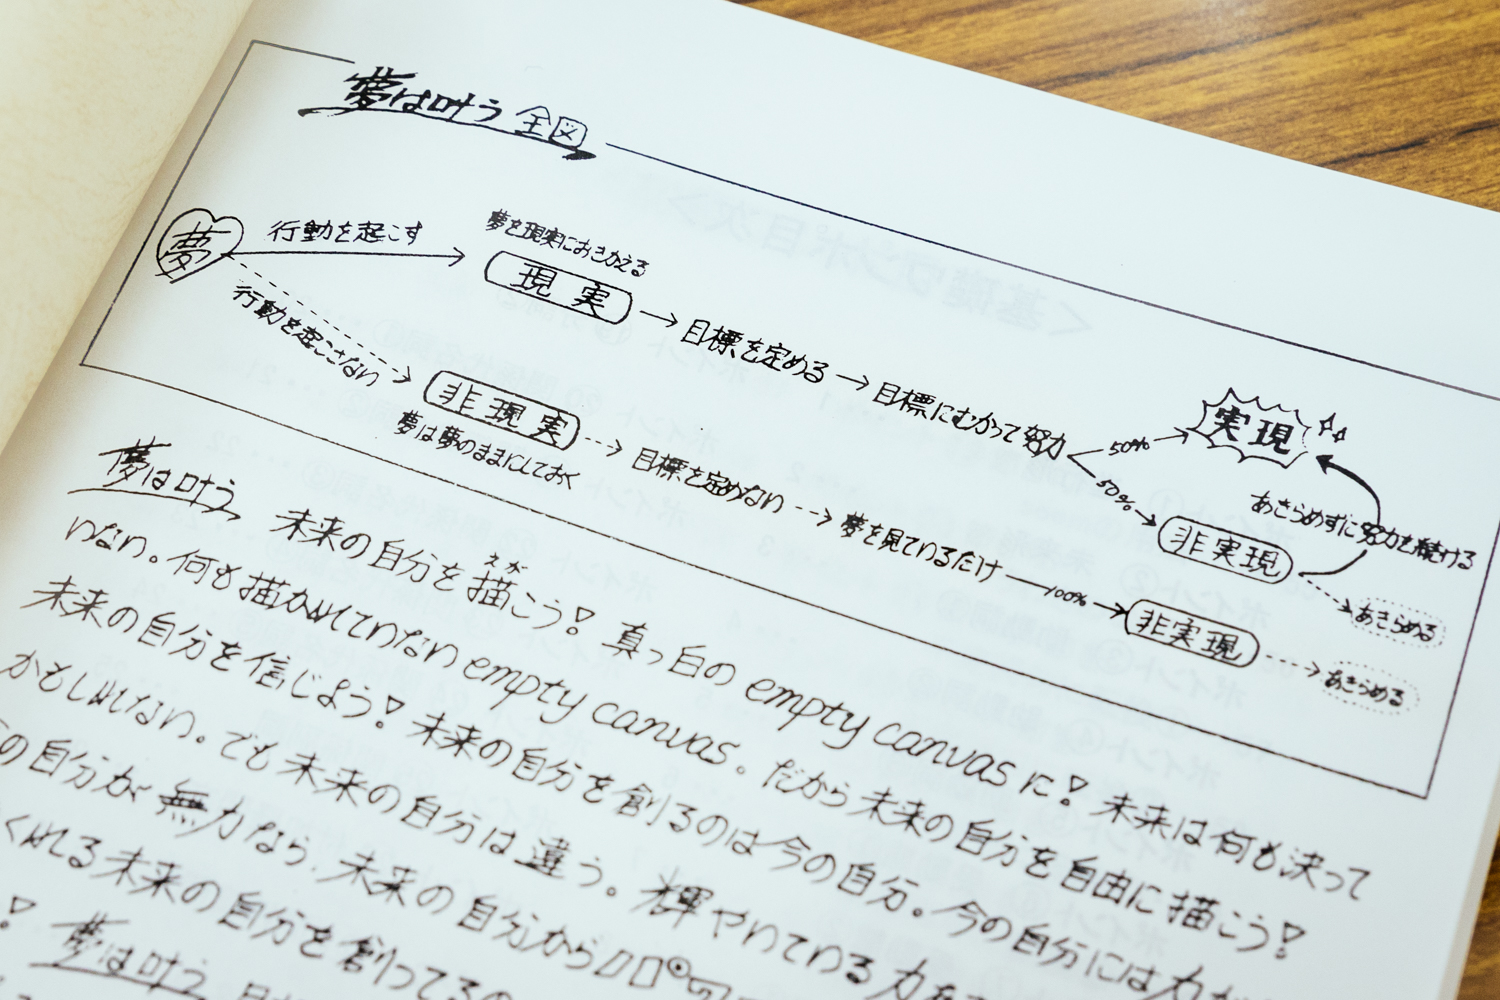 夢は叶う 全図
夢
行動を起こす
夢を現実におきかえる
現実
目標を定める
目標にむかって努力
50%
実現
50%
非実現
あきらめずに努力を続ける
あきらめる
行動を起こさない
非現実
夢は夢のままにしておく
目標を定めない
夢を見ているだけ
100%
非実現
あきらめる
夢は叶う 未来の自分を描こう! 真っ白の empty canvas に! 未来は何も決って
えが
いない。何も描かれていない empty canvas。だから未来の自分を自由に描こう!
未来の自分を信じよう! 未来の自分を創るのは今の自分。今の自分には力が
かもしれない。でも未来の自分は違う。輝やいている力を
の自分が無力なら、未来の自分から
くれる未来の自分を創ってるの
! 夢は叶う